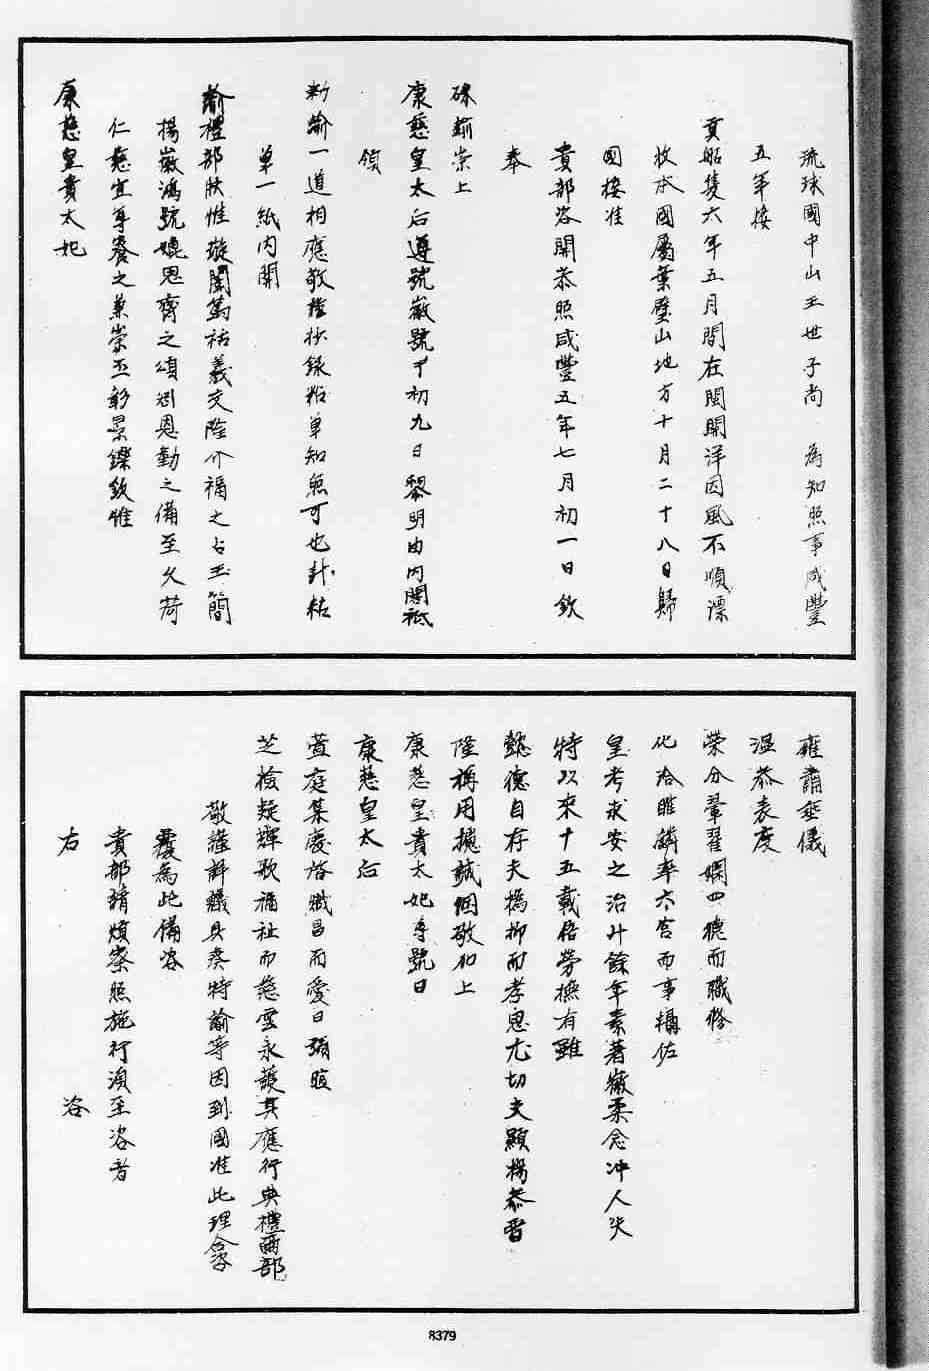 琉球國中山王世子尚　為知照事咸豐
五年接
貢船隻六年五月間在閩開洋因風不順漂
收本國屬葉壁山地方十月二十八日歸
國接准
貴部咨開恭照咸豐五年七月初一日欽
奉
硃諭崇上
康慈皇太后遵號徽號于初九日黎明由內閣祗
領
新諭一道相應敬謹抄錄粘單知照可也計粘
單一紙內開
諭禮部朕惟璇闈篤祜義文隆介福之占玉簡
揚徽鴻號媲思齊之頌溯恩勤之備至久荷
仁慈宜尊養之兼崇丕彰景鑠欽惟
康慈皇貴太妃
雍肅垂儀
溫恭表度
榮分翬翟嫻四德而職修
化洽睢麟率六宮而事禑佐
皇考求安之治廾餘年素著徽柔念沖人失
恃以來十五載倍勞撫育雖
懿德自存夫撝抑而孝思尤切夫顯揚恭晋
隆稱用攄誠悃敬加上
康慈皇貴太妃尊號曰
康慈皇太后
萱庭集慶啓熾昌而愛日彌暄
芝檢凝輝歌福祉而慈雲永護其應行典禮爾部
敬謹詳議具奏特諭等因到國准此理合咨
覆為此備咨
貴部請煩察照施行湏至咨者
右　　　　　　咨
8379